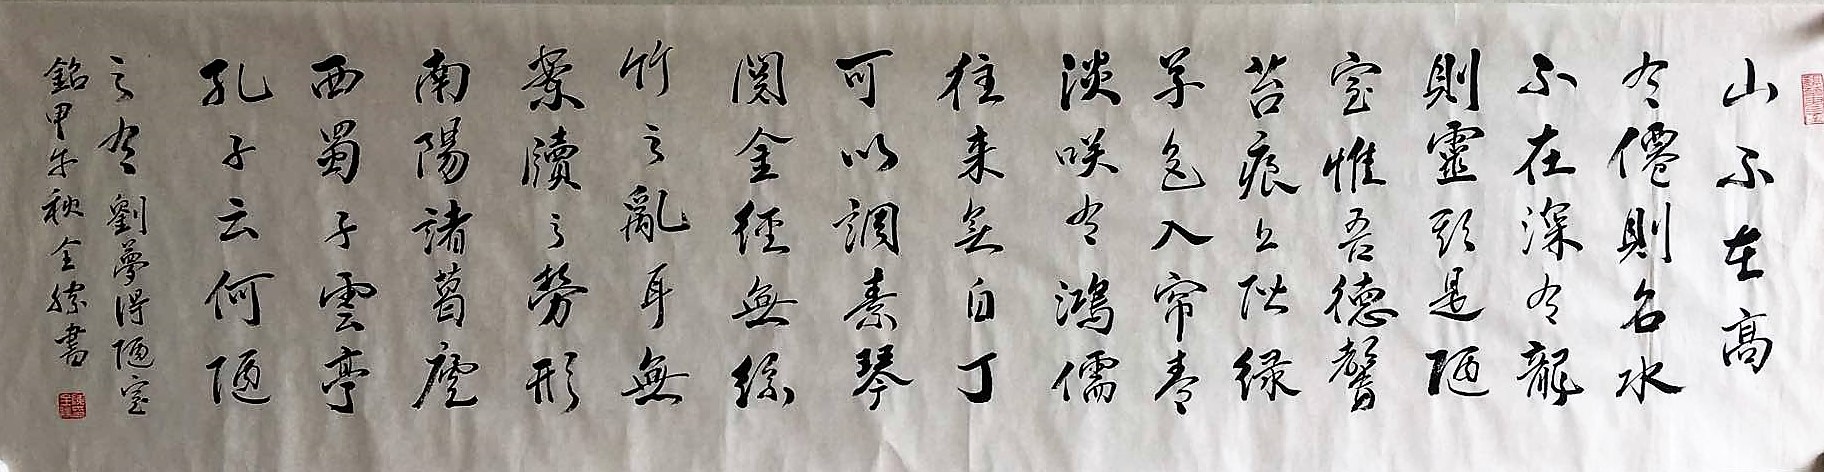 山不在高
有僊則名水
不在深有龍
則靈斯是陋
室惟吾德馨
苔痕上階緑
草色入帘青
淡咲有鴻儒
往来無白丁
可以調素琴
閱金經無絲
竹之亂耳無
案牘之勞形
南陽諸葛廬
西蜀子雲亭
孔子云何陋
之有 劉夢得陋室
銘甲午秋全書